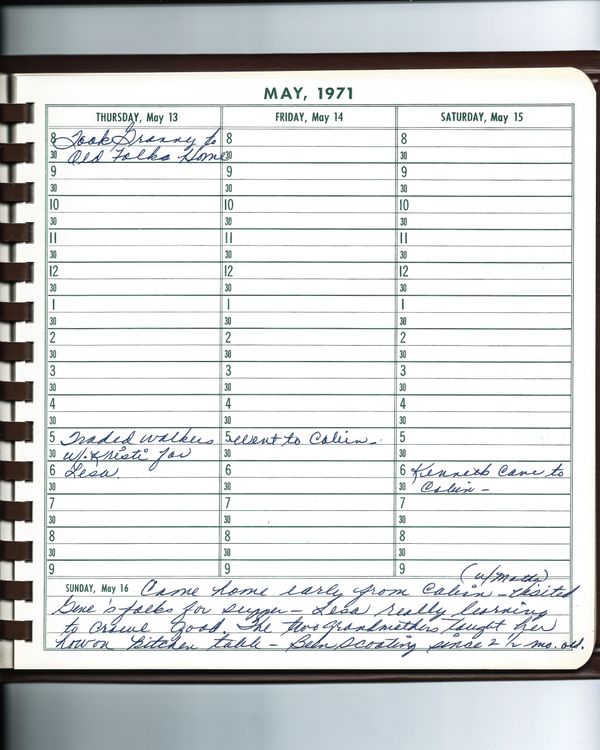 MAY, 1971
THURSDAY, May 13
8 Took Granny to
30 Old Folks Home
9
30
10
30
11
30
12
30
1
30
2
30
3
30
4
30
5 Traded walkers
30 w/. Kristi for
6 Lesa.
30
7
30
8
30
9
FRIDAY, May 14
8
30
9
30
10
30
11
30
12
30
1
30
2
30
3
30
4
30
5 went to Cabin -
30
6
30
7
30
8
30
9
SATURDAY, May 15
8
30
9
30
10
30
11
30
12
30
1
30
2
30
3
30
4
30
5
30
6 Kenneth came to
30 Cabin -
7
30
8
30
9
(w/Matty)
SUNDAY, May 16 Came home early from Cabin - visited
Gene's folks for supper - Lesa really learning
to crawl good The two grandmothers taught her
how on kitchen table - Been scooting since 2 1/2 mo. old.